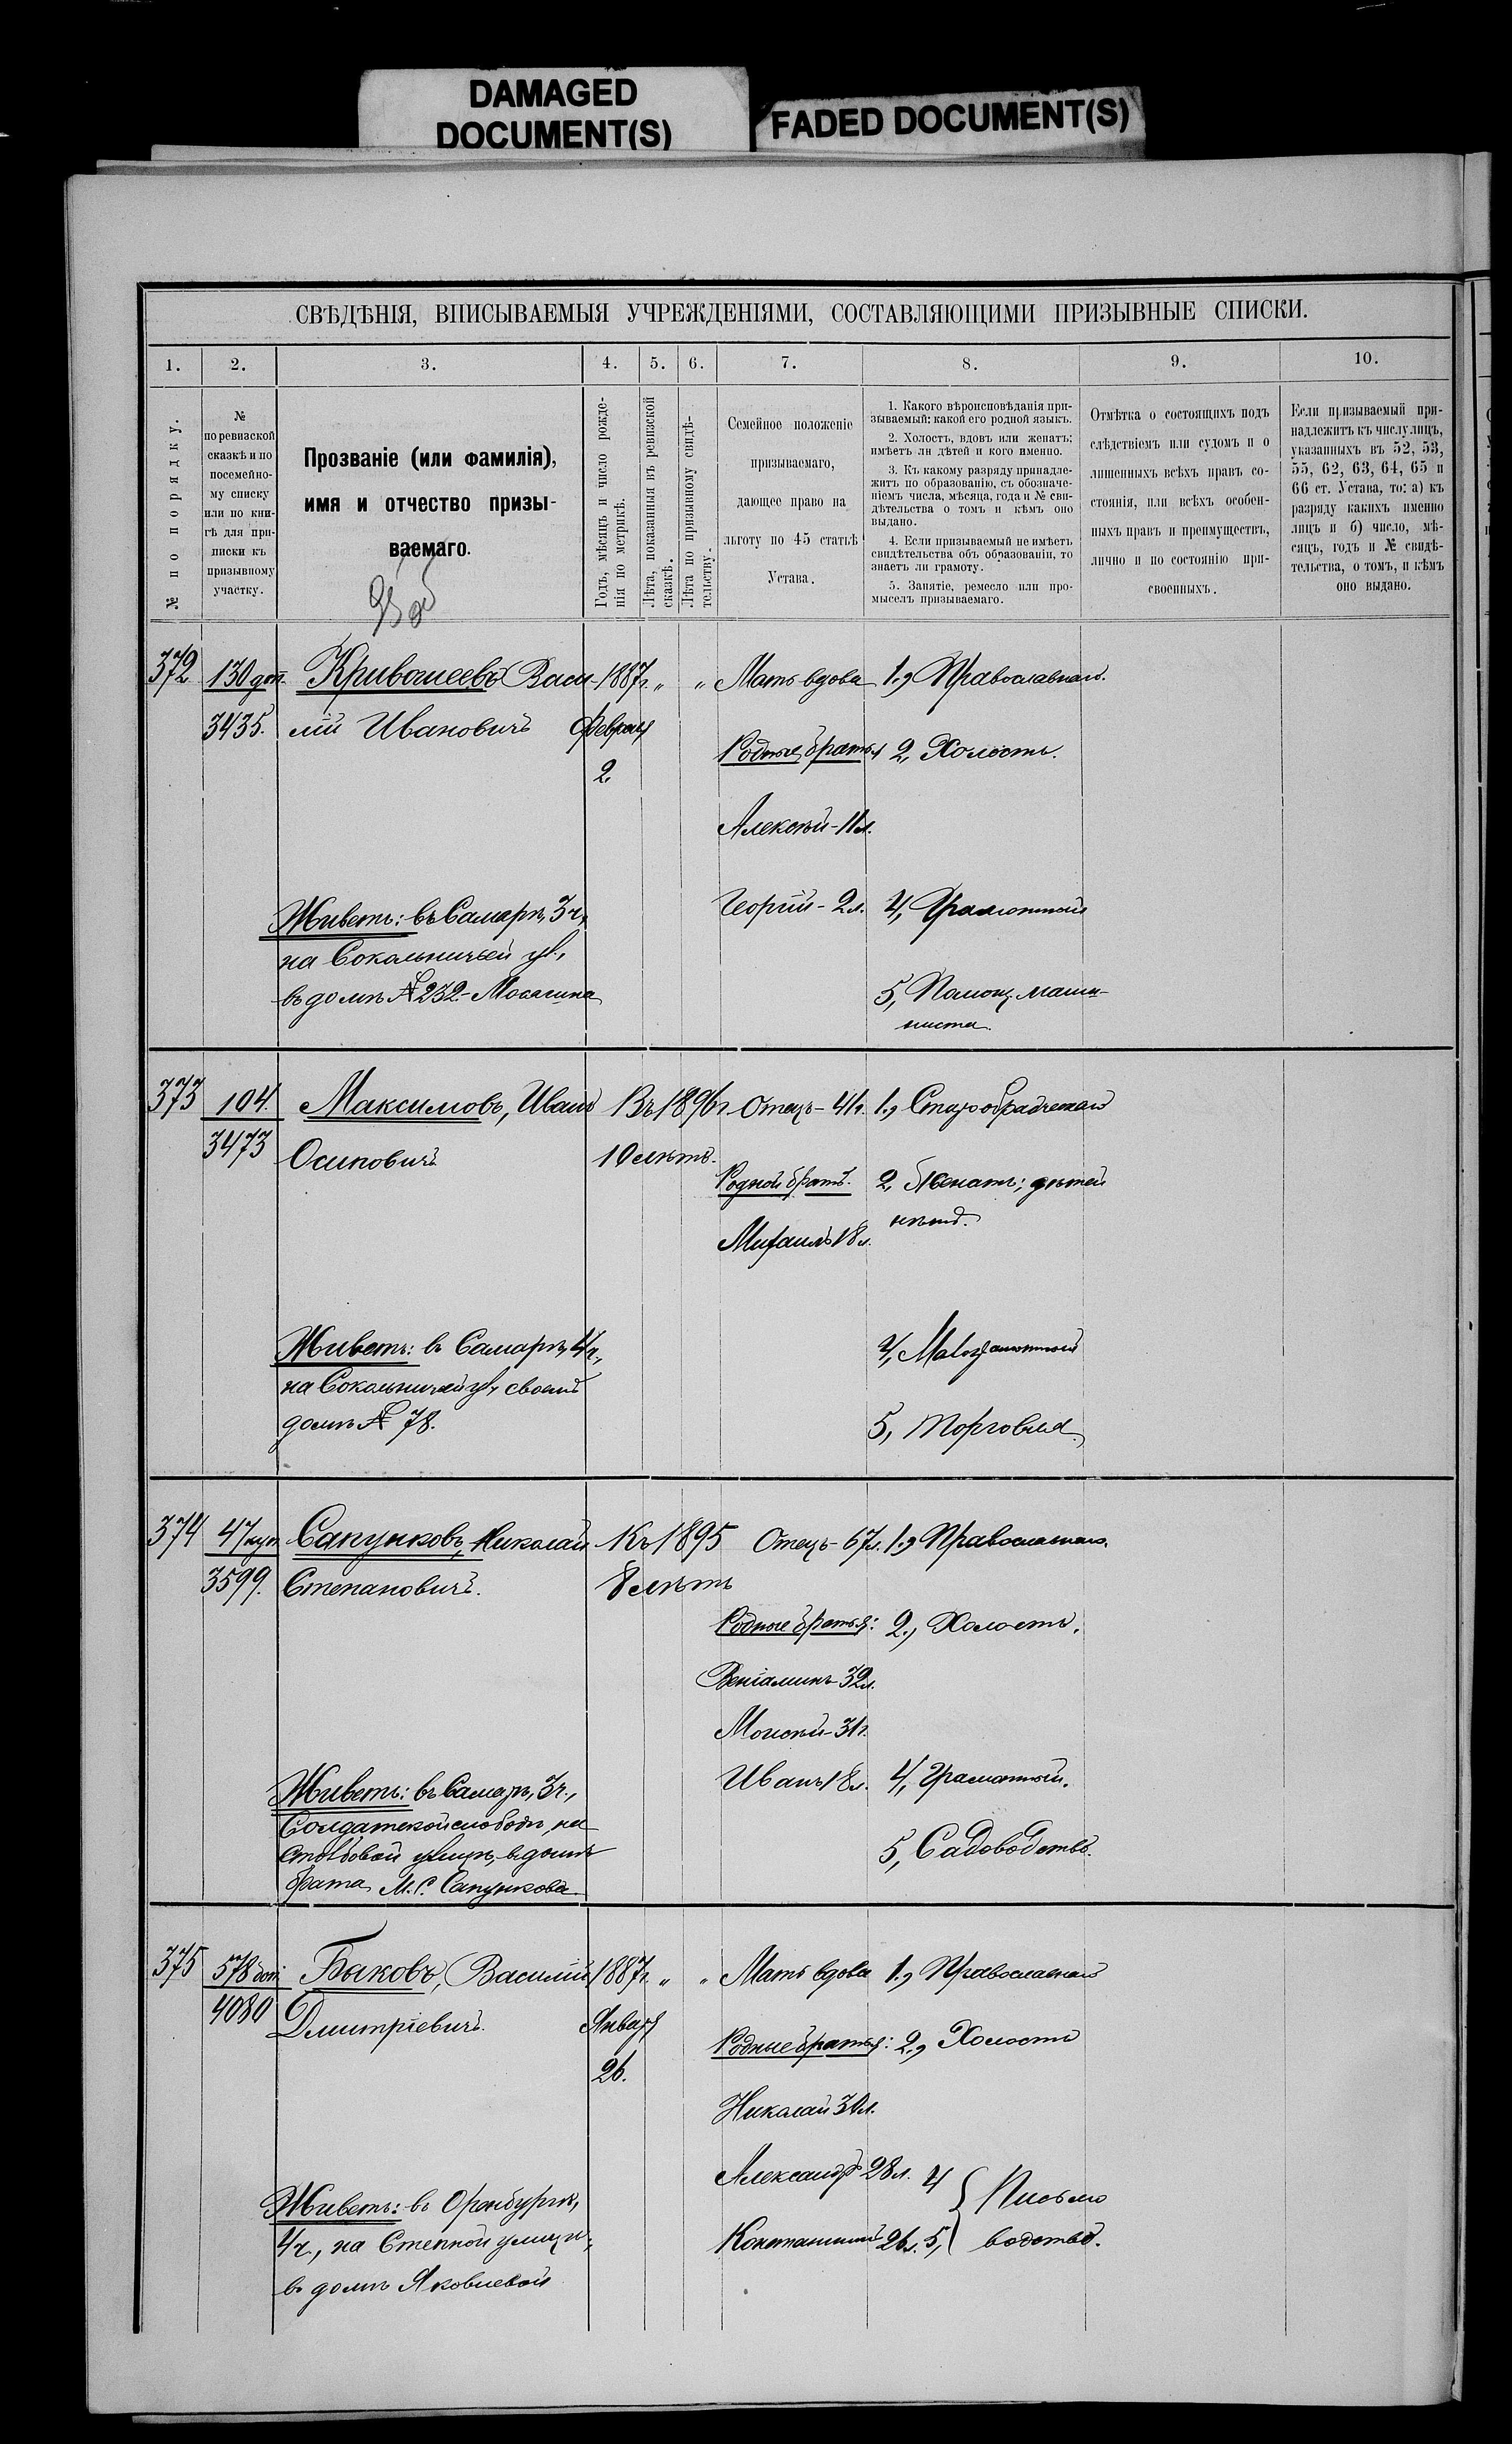 DAMAGED
DOCUMENT(S)
FADED DOCUMENT(S)
СВѢДѢНІЯ, ВПИСЫВАЕМЫЯ УЧРЕЖДЕНІЯМИ, СОСТАВЛЯЮЩИМИ ПРИЗЫВНЫЕ СПИСКИ.
1. 2. 3. 4. 5. 6. 7. 8. 9. 10.
№ по порядку.
№
по ревизской
сказкѣ и по
посемейно-
му списку
или по кни-
гѣ для при-
писки къ
призывному
участку.
Прозваніе (или фамилія),
имя и отчество призы-
ваемаго.
Годъ, мѣсяцъ и число рожде-
нія по метрикѣ.
Лѣта, показанныя въ ревизской
сказкѣ.
Лѣта по призывному свидѣ-
тельству.
Семейное положеніе
призываемаго,
дающее право на
льготу по 45 статьѣ
Устава.
1. Какого вѣроисповѣданія при-
зываемый: какой его родной языкъ.
2. Холостъ, вдовъ или женатъ;
имѣетъ ли дѣтей и кого именно.
3. Къ какому разряду принадле-
житъ по образованію, съ обозначе-
ніемъ числа, мѣсяца, года и № сви-
дѣтельства о томъ и кѣмъ оно
выдано.
4. Если призываемый не имѣетъ
свидѣтельства объ образованіи, то
знаетъ ли грамоту.
5. Занятіе, ремесло или про-
мыселъ призываемаго.
Отмѣтка о состоящихъ подъ
слѣдствіемъ или судомъ и о
лишенныхъ всѣхъ правъ со-
стоянія, или всѣхъ особен-
ныхъ правъ и преимуществъ,
лично и по состоянію при-
своенныхъ.
Если призываемый при-
надлежитъ къ числу лицъ,
указанныхъ въ 52, 53,
55, 62, 63, 64, 65 и
66 ст. Устава, то: а) къ
разряду какихъ именно
лицъ и б) число, мѣ-
сяцъ, годъ и № свидѣ-
тельства, о томъ, и кѣмъ
оно выдано.
372 130 доп. Кривошеевъ Васи- 1887г. " " Мать вдова 1, Православнаго.
3435. лій Ивановичъ Февраля
2
Родные братья 2, Холостъ.
Алексѣй - 11л.
Георгій - 2л. 4, Грамотный
Живетъ: въ Самарѣ, 3ч,
на Сокольничьей ул.,
въ домѣ № 232 - Мосягина
5, Помощ. маши-
ниста.
373 104. Максимовъ, Иванъ Въ 1896г. Отецъ - 41г. 1, Старообрядческаго
3473 Осиповичъ 10 лѣтъ.
Родной братъ. 2, Женатъ; дѣтей
нѣтъ.
Михаилъ 18л.
Живетъ: въ Самарѣ, 4ч,
на Сокольничей ул, своемъ
домѣ № 78.
4, Малограмотный
5, Торговля.
374 47 куп. Сапунковъ, Николай Къ 1895 Отецъ - 67л. 1, Православнаго.
3599. Степановичъ. 8 лѣтъ
Родные братья: 2, Холостъ.
Веніаминъ - 32л.
Моисей - 31г.
Иванъ 18л. 4, Грамотный.
Живетъ: въ Самарѣ, 3ч.,
Солдатской слободѣ, на
Столбовой улицѣ, въ домѣ
брата М. С. Сапункова
5, Садоводство.
375 578 доп. Быковъ, Василій 1887г. " " Мать вдова 1, Православнаго
4080 Дмитріевичъ. Января
26.
Родные братья: 2, Холостъ
Николай 30л.
Александръ 28л. 4 Письмо
Константинъ 26л. 5, водство.
Живетъ: въ Оренбургѣ,
4ч., на Степной улицѣ,
въ домѣ Яковлевой